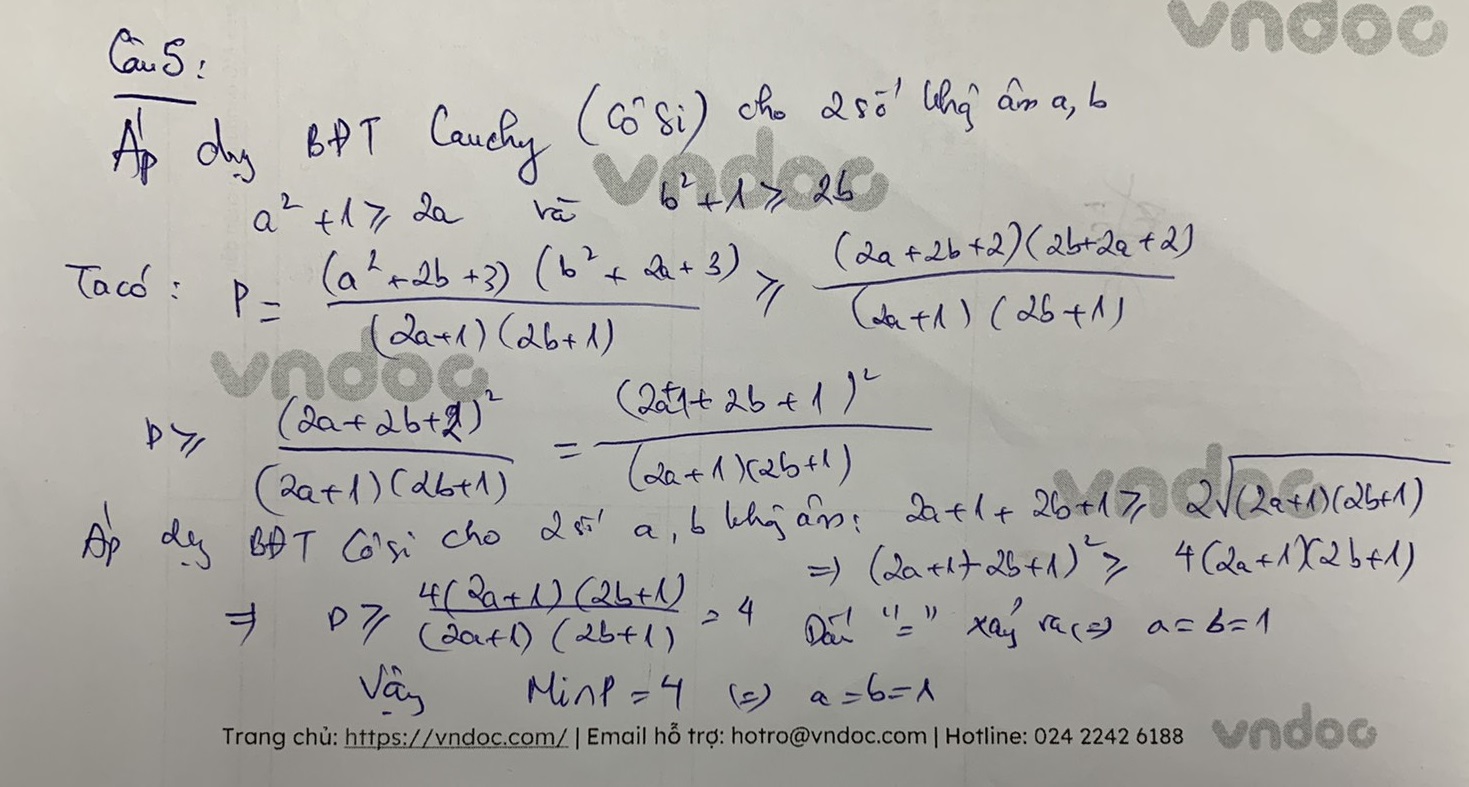 vndoc
Câu 5:
Áp dụng BĐT Cauchy (Cô si) cho 2 số không âm a, b
vndoc
a² + 1 ≥ 2a và b² + 1 ≥ 2b
Ta có: P = (a² + 2b + 3)(b² + 2a + 3) / (2a+1)(2b+1) ≥ (2a + 2b + 2)(2b + 2a + 2) / (2a+1)(2b+1)
vndoc
P ≥ (2a + 2b + 2)² / (2a+1)(2b+1) = (2a+1 + 2b + 1)² / (2a+1)(2b+1)
vndoc
Áp dụng BĐT Côsi cho 2 số a, b không âm: 2a+1 + 2b+1 ≥ 2√(2a+1)(2b+1)
=> (2a+1+2b+1)² ≥ 4(2a+1)(2b+1)
=> P ≥ 4(2a+1)(2b+1) / (2a+1)(2b+1) = 4 Dấu "=" xảy ra (=) a = b = 1
Vậy MinP = 4 (=) a = b = 1
Trang chủ: https://vndoc.com/ | Email hỗ trợ: hotro@vndoc.com | Hotline: 024 2242 6188
vndoc